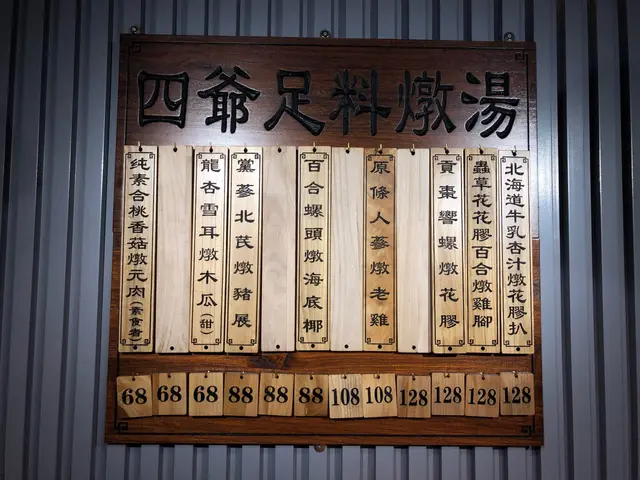 四爺足料燉湯
純素合桃香菇燉元肉(素食者)
龍杏雪耳燉木瓜(甜)
黨蔘北芪燉豬展
百合螺頭燉海底椰
原條人蔘燉老雞
貢棗響螺燉花膠
蟲草花花膠百合燉雞腳
北海道牛乳杏汁燉花膠扒
68 68 68 88 88 88 108 108 128 128 128 128